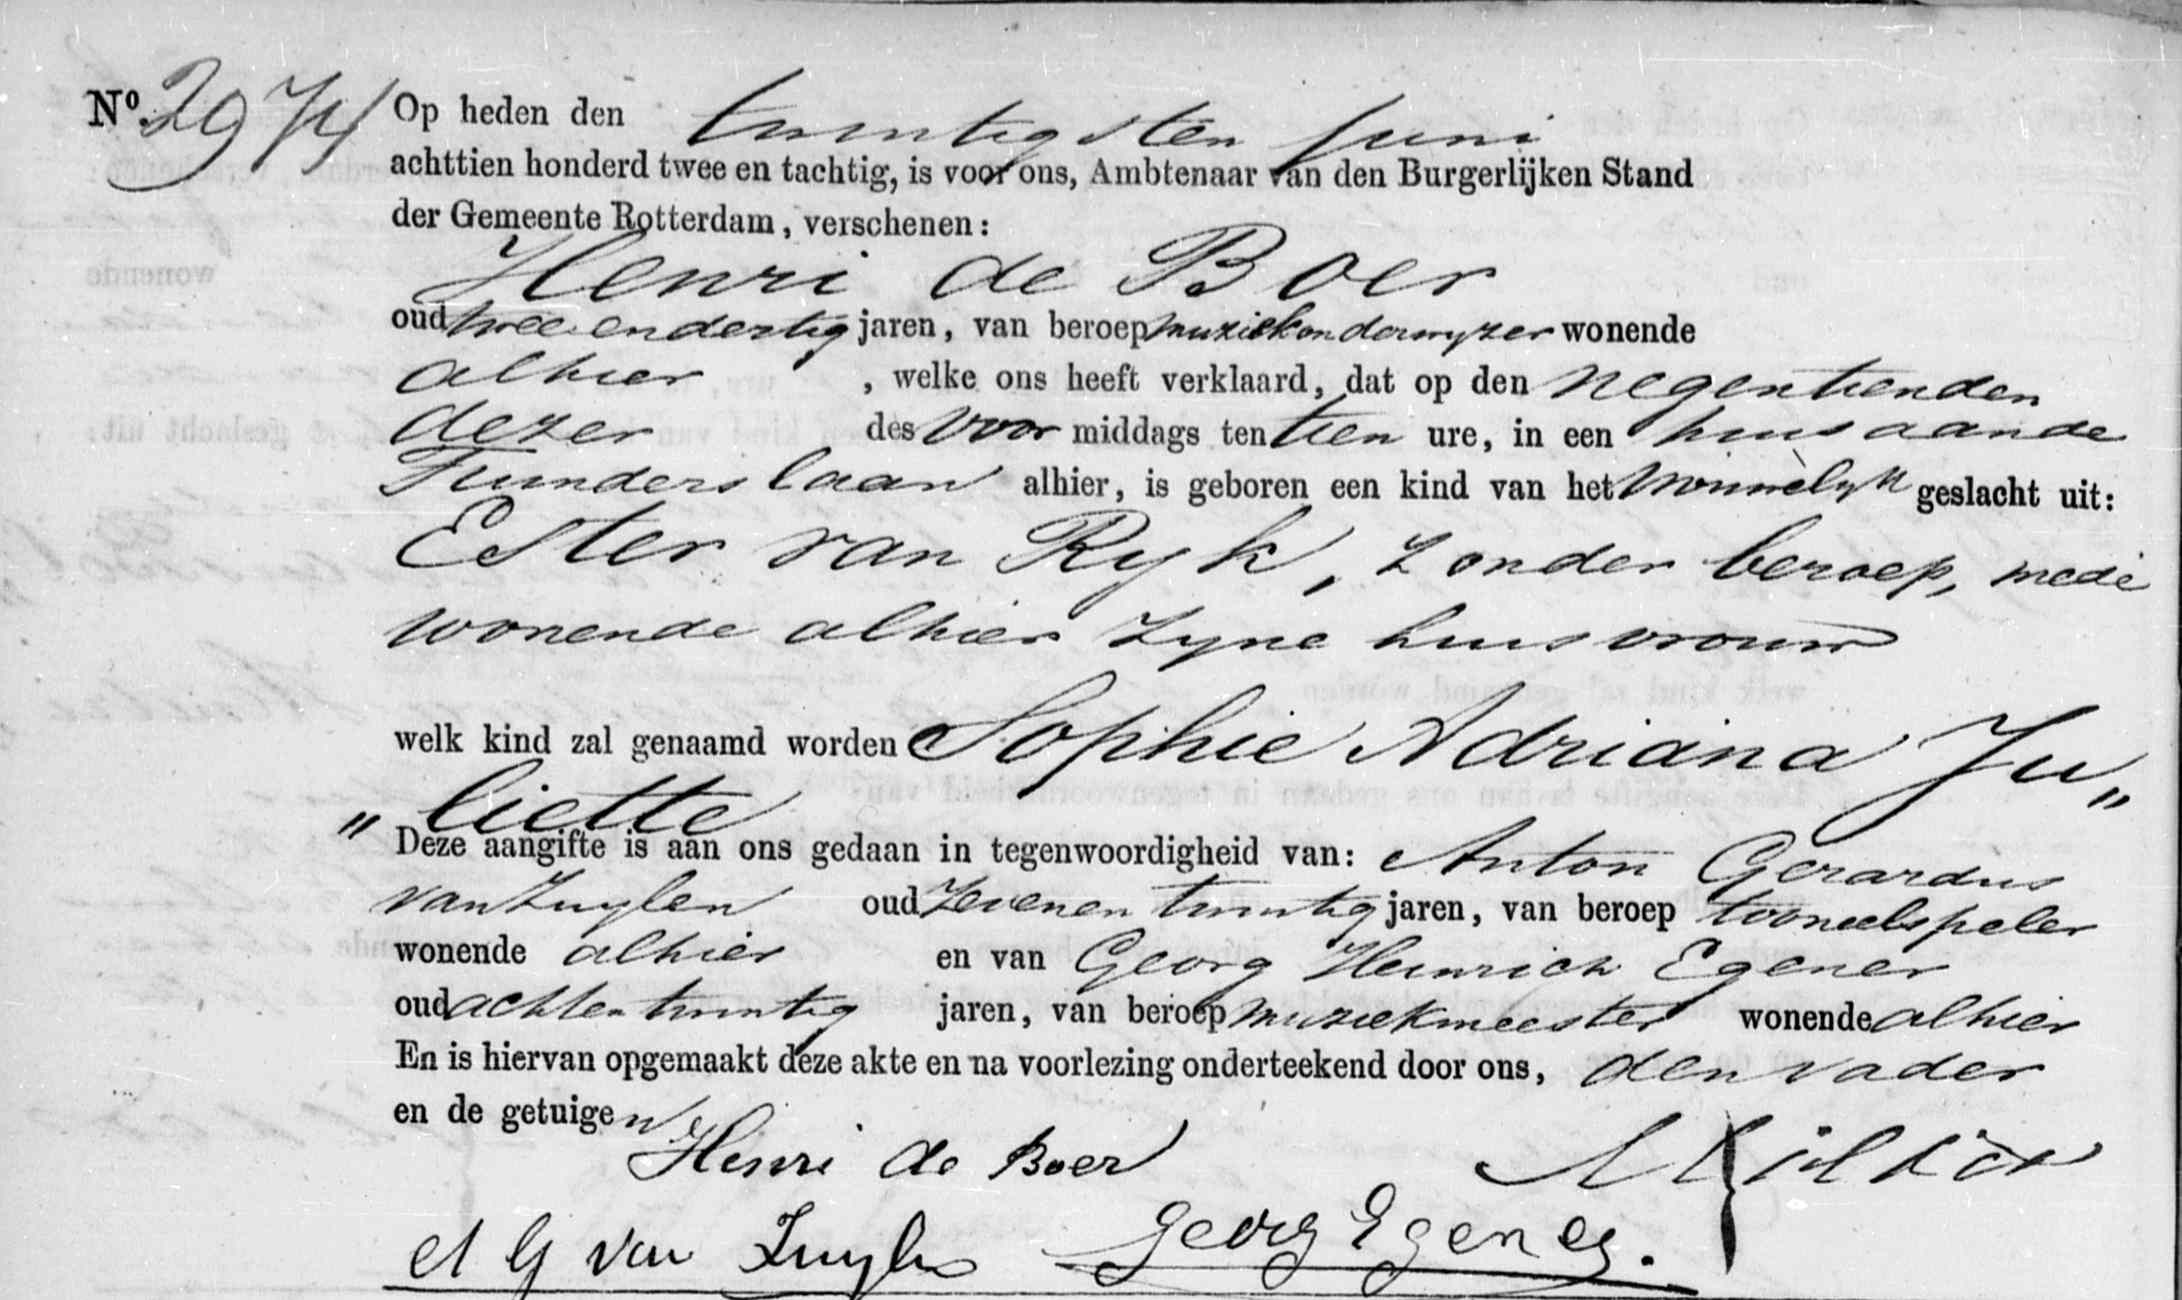 No. 2974 Op heden den twintigsten Juni
achttien honderd twee en tachtig, is voor ons, Ambtenaar van den Burgerlijken Stand
der Gemeente Rotterdam, verschenen:
Henri de Boer
oud twee en dertig jaren, van beroep muziekonderwyzer wonende
alhier , welke ons heeft verklaard, dat op den negentienden
dezer des voor middags ten tien ure, in een huis aan de
laan alhier, is geboren een kind van het vrouwelyk geslacht uit:
Ester van Ryk, zonder beroep, mede
wonende alhier zyne huisvrouw
welk kind zal genaamd worden Sophie Adriana Ju„
„liette
Deze aangifte is aan ons gedaan in tegenwoordigheid van: Anton Gerardus
van Zuylen oud zeven en twintig jaren, van beroep tooneelspeler
wonende alhier en van Georg Heinrich Egener
oud acht en twintig jaren, van beroep muziekmeester wonende alhier
En is hiervan opgemaakt deze akte en na voorlezing onderteekend door ons, den vader
en de getuigen
Henri de Boer
A G van Zuylen Georg Egener.